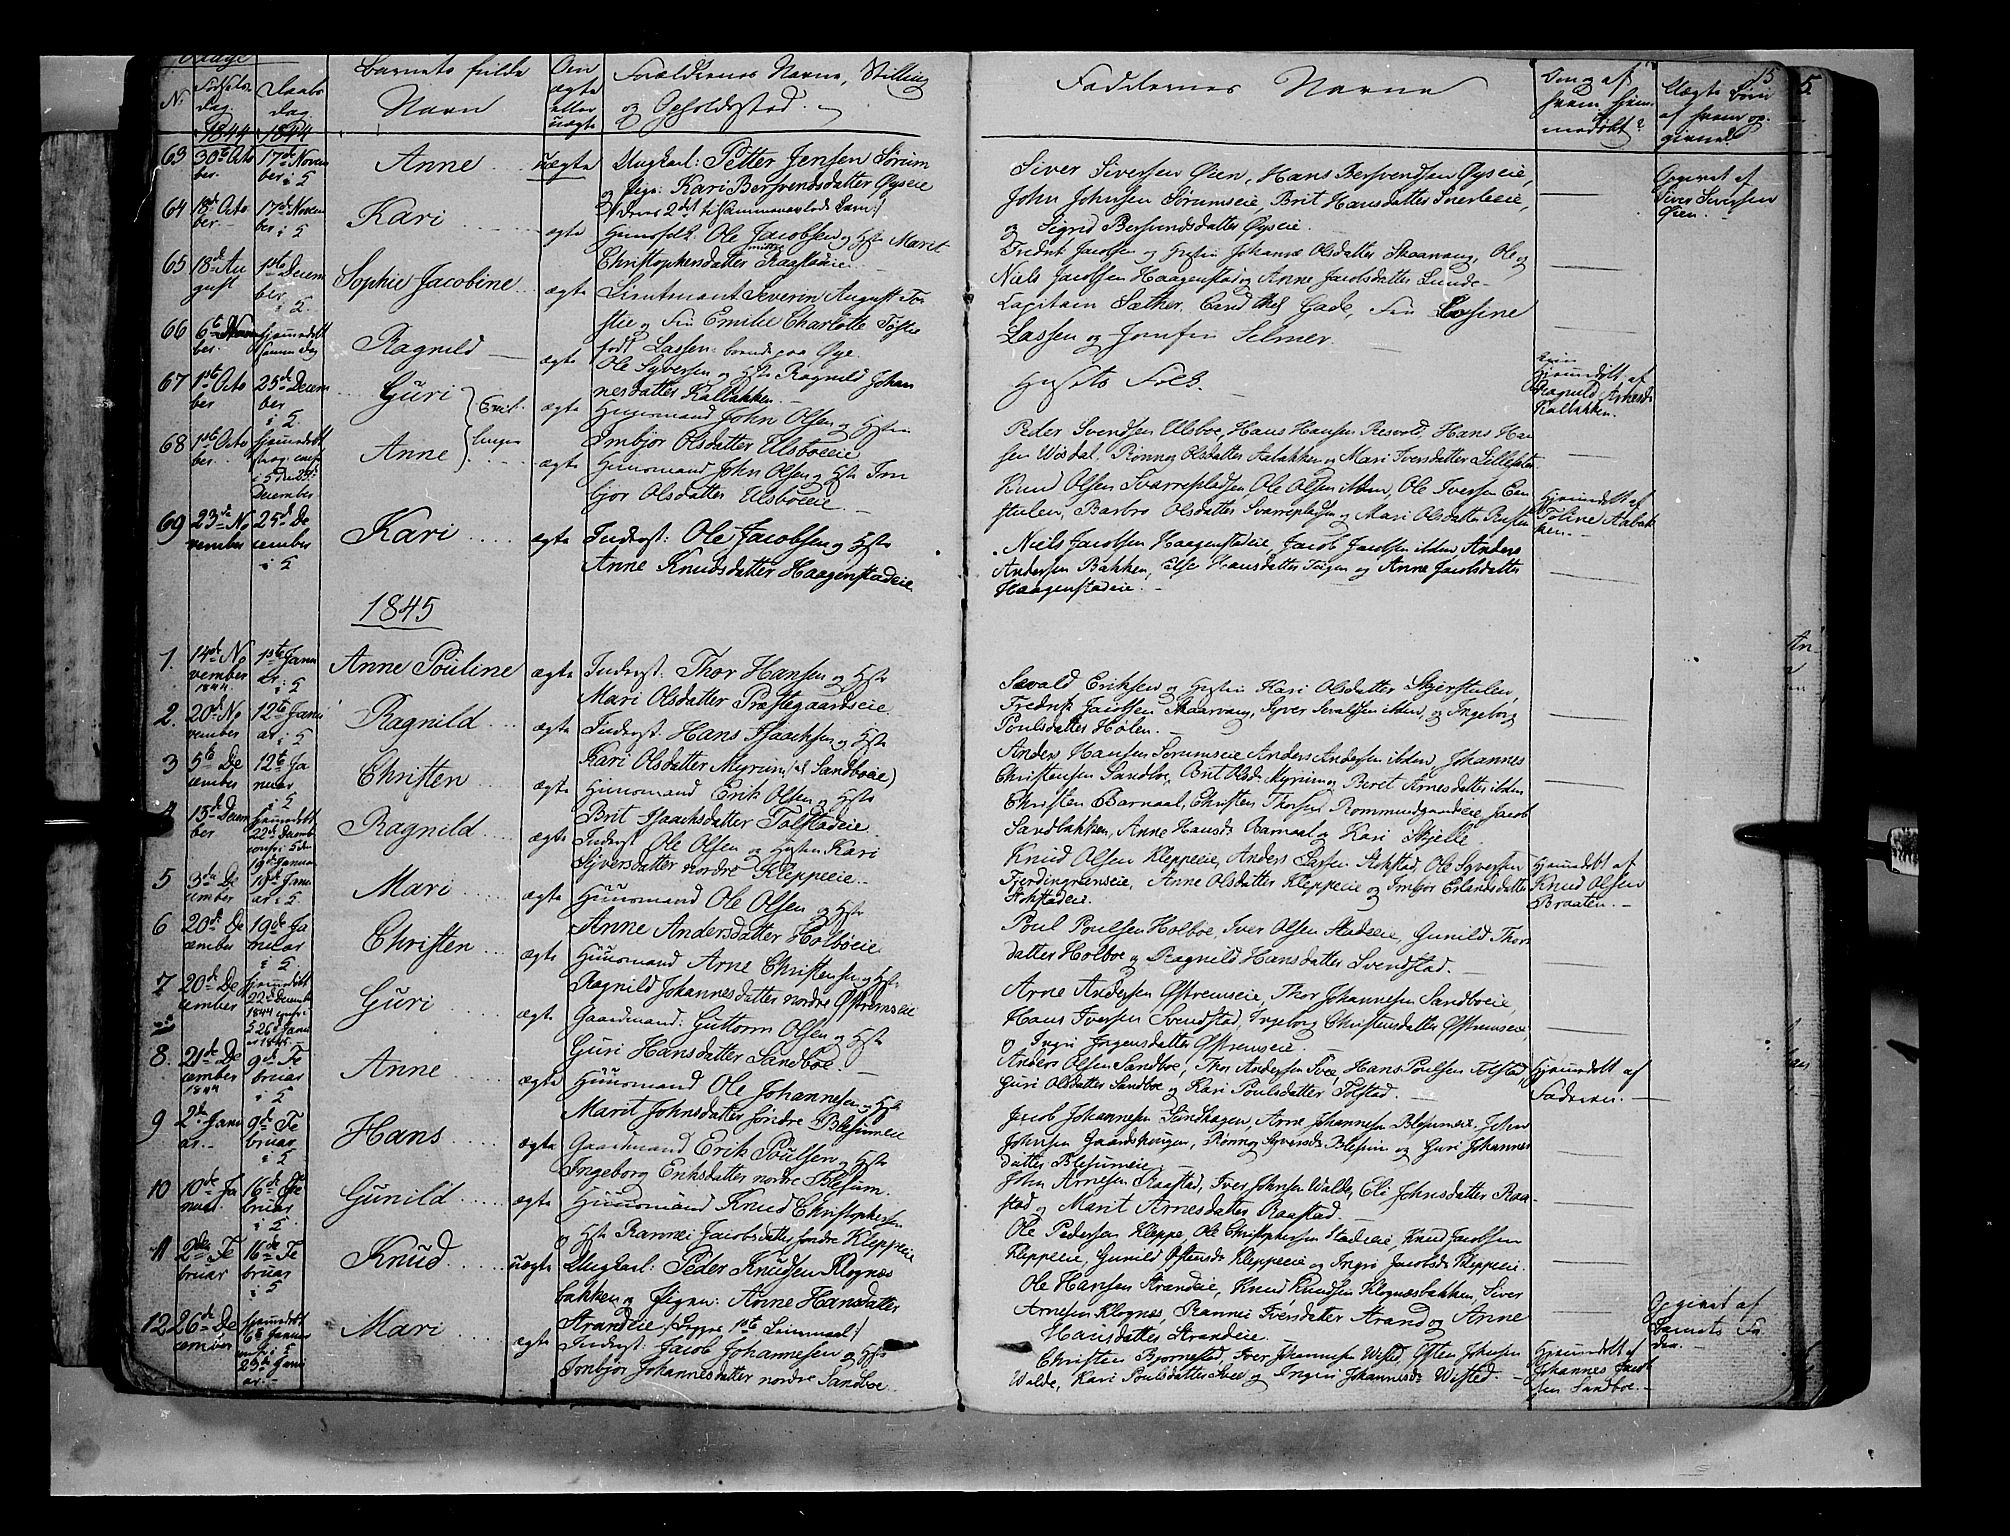 15
N. Fødsels- dag. Daabs dag. Barnets fulde Navn Om ægte eller uægte Forældrenes Navne, Stilling og Opholdssted.
Faddernes Navne
1844 1844
63 30te Octo ber. 17de Novem ber i 5 Anne uægte Ungkarl: Petter Jensen Sørum
og Pige: Kari Bersvendsdatter Øyseie
Siver Siversen Øien, Hans Bersvendsen Øyseie,
John Johnsen Sørumseie, Brit Hansdatter
og Sigrid Bersvendsdatter Øyseie.
Opgivet af Siver Siversen Øien.
64 18de Octo ber. 17de Novem ber i 5 Kari ægte Huusfolk: Ole Jacobsen og Hst Marit
Christophersdatter Raastadeie
Fredrik Jacobsen og Hustru Johanne Olsdatter Skaarvang, Ole og
Niels Jacobsen Haagenstad og Anne Jacobsdatter Lunde.
65 18de Au gust 1ste Decem ber i 5. Sophie Jacobine ægte Lieutnant Severin August
og Fru Emilie Charlotte
født Lassen: boende paa Øye.
Capitain Sæther, Cand Gade, Fru Losine
Lassen og Jomfru Selmer.
66 6te ber. hjemmedøbt samme Dag Ragnild ægte Ole Syversen og Hst Ragnild Johan
nesdatter Kalbakken.
Husets Folk.
Hjemmedøbt af Ragnild Kalbakken.
67 1ste Octo ber 25de Decem ber i 5 Guri ægte Huusmand John Olsen og Hstru
Imbjør Olsdatter Ulsboeie
Peder Svendsen Ulsboe, Hans Hansen Resvold, Hans Han
sen Wisdal, Rønnog Olsdatter Aabakken og Mari Iversdatter
68 1ste Octo ber. hjemmedøbt i 5 den 25de December Anne ægte Huusmand John Olsen og Hst Im
bjør Olsdatter Ulsboeie.
Knud Olsen Sværrepladsen, Ole Olsen ibdm, Ole Iversen
Barbro Olsdatter Sværrepladsen og Mari Olsdatter
Hjemmedøbt af Toline Aabak ken.
69 23de No vember 25de De cember i 5 Kari ægte Inderst: Ole Jacobsen og Hst
Anne Knudsdatter Haagenstadeie
Niels Jacobsen Haagenstadeie, Jacob Jacobsen ibdm, Anders
Andersen Bakken, Else Hansdatter og Anne Jacobsdatter
Haagenstadeie.
1845
1. 14de No vember 1844 1ste Janu ar. i 5 Anne Pouline ægte Inderst: Thor Hansen og Hst
Mari Olsdatter Præstegaardseie.
Sævald Eriksen og Hustru Kari Olsdatter Skjerstulen,
Fredrik Jacobsen Skaarvang, Syver Sevaldsen ibdm, og Ingeborg
Poulsdatter Hølen.
2. 20de No vember 12te Janu ar. i 5 Ragnild ægte Inderst Hans Isaachsen og Hst
Kari Olsdatter Myrum (al Sandboeie)
Anders Hansen Sørumseie, Anders Andersen ibdm, Johannes
Christensen Sandboe, Brit Olsdr Myrum og Beret Arnesdatter ibdm
3 5te De cember 12te Ja nuar i 5 Christen ægte Huusmand Erik Olsen og Hst
Brit Isaachsdatter Tolstadeie
Christen Barnaal, Christen Thorsen Rommundgaardeie, Jacob
Sandbakken, Anne Hansdr Barnaal og Kari Skjelle
4 15de Decem ber hjemmedøbt 22de Decemb confr i 5 den 19de Januar Ragnild ægte Inderst Ole Olsen og Hustru Kari
Syversdatter nordre Kleppeeie.
Knud Olsen Kleppeeie, Anders Larsen Stokstad, Ole Syversen
Fjerdingreenseie, Anne Olsdatter Kleppeeie og Imbjør Erlandsdatter
Stokstadeie.
Hjemmedøbt af Knud Olsen Braaten.
5 3de De cember 19de Janu ar. i 5 Mari ægte Huusmand Ole Olsen og Hst
Anne Andersdatter Holboeie
Poul Poulsen Holboe, Iver Olsen Stadeeie, Gunild Thors
datter Holboe og Ragnild Hansdatter Svendstad.
6 20de De cember 19de Ja nuar i 5. Christen ægte Huusmand Arne Christensen og Hst
Ragnild Johannesdatter nordre Øfstremseie
Arne Andersen Øfstremseie, Thor Johannesen Sandboeie,
Hans Iversen Svendstad, Ingeborg Christensdatter Øfstremseie
og Ingri Øfstremseie.
7 20de De cember hjemmedøbt 22de Decemb 1844 confr i 5 26de Janu ar 1845 Guri ægte Gaardmand: Guttorm Olsen og Hst
Guri Hansdatter Sandboe
Anders Olsen Sandboe, Thor Andersen Svee, Hans Poulsen Tolstad,
Guri Olsdatter Sandboe og Kari Poulsdatter Tolstad.
Hjemmedøbt af Faderen.
8. 21de De cember 1844 9de Fe bruar i 5 Anne ægte Huusmand Ole Johannesen og Hst
Marit Johnsdatter søndre Blesumeie
Jacob Johannesen Sandhagen, Arne Johannesen Blesumeie, John
Johnsen Gaardsheugen, Rønnog Syversdr Blesum og Guri Johannes
datter Blesumeie
9 2de Janu ar. 9de Fe bruar i 5 Hans ægte Gaardmand Erik Poulsen og Hst
Ingeborg Eriksdatter nordre Blesum.
John Arnesen Raastad, Iver Johnsen Walde, Eli Johnsdatter Raa
stad og Marit Arnesdatter Raastad.
10 10de Ja nuar. 16de Fe bruar i 5. Gunild ægte Huusmand Knud Christophersen
og Hst Rannei Jacobsdatter søndre Kleppeie
Ole Pedersen Kleppe, Ole Christophersen Stadeeie, Knud Jacobsen
Kleppeeie, Gunild Østensdr Kleppeeie og Ingri Jacobsdr Kleppeeie.
11 2den Fe bruar 16de Fe bruar i 5 Knud uægte Ungkarl: Peder Knudsen Klognæs
bakken og Pigen: Anne Hansdatter
Strandeie /: begges 1ste Leiermaal :/
Ole Hansen Strandeie, Knud Knudsen Klognæsbakken, Siver
Arnesen Klognæs, Rannei Iversdatter Strand og Anne
Hansdatter Strandeie.
Opgivet af Barnets Fa der.
12 26de De cember hjemmedøbt 6te Januar confr i 5 23de Janu ar. Mari ægte Inderst: Jacob Johannesen og Hst
Imbjør Johannesdatter nordre Sandboe
Christen Bjørnstad, Iver Johannesen Wisted, Østen Johnsen
Walde, Kari Poulsdatter Svee og Ingri Johannesdr Wisted.
Hjemmedøbt af Johannes Jacob sen Sandboe.